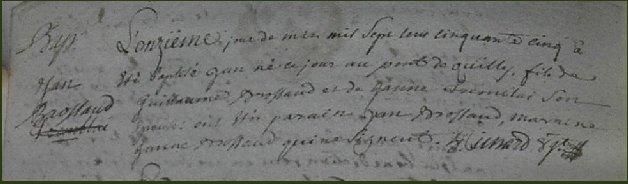 Bap.
Jean
Brossaud
L'onzieme jour de mai mil Sept cens cinquante cinq a
été Baptisé Jean né ce jour au pont de quilly, fils de
Guillaume Brossaud et de Jeanne son
ont été parain Jean Brossaud, maraine
Jeanne Brossaud qui ne Signent.